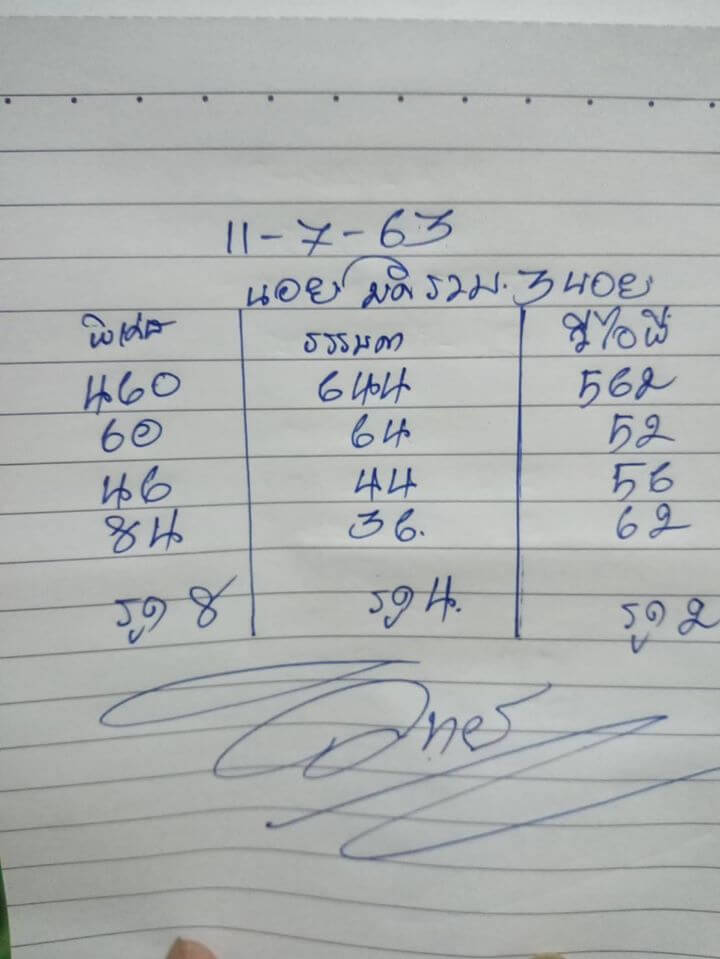 11-7-63
นอย มติรวม. 3 นอย
พิเศษ ธรรมดา วีไอพี
460 644 562
60 64 52
46 44 56
84 36. 62
รูด 8 รูด 4. รูด 2